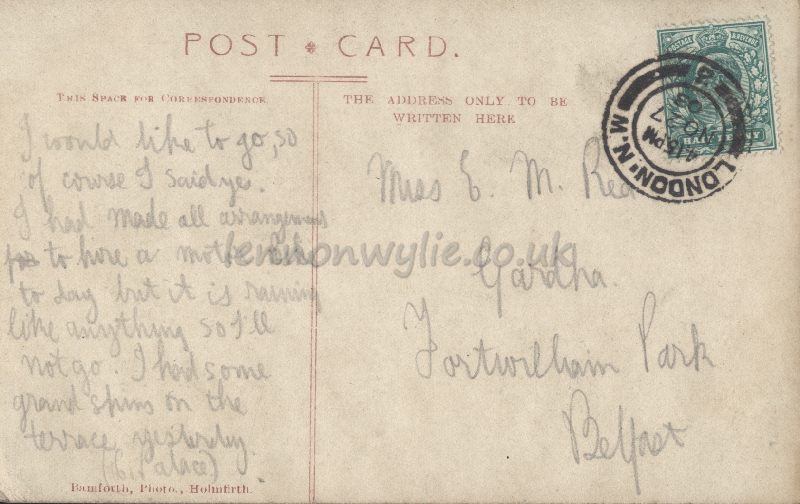 POST CARD.
THIS SPACE FOR CORRESPONDENCE.
THE ADDRESS ONLY TO BE
WRITTEN HERE
I would like to go, so
of course I said yes.
I had made all arrangements
to hire a motor
to day but it is raining
like anything so I'll
not go. I had some
grand spins on the
terrace yesterday.
Bamforth, Photo., Holmfirth.
Miss E. M. Reid
Gardha.
Fortwilliam Park
Belfast
LONDON. N.W.
4.15 PM
NO 27
03
lennonwylie.co.uk